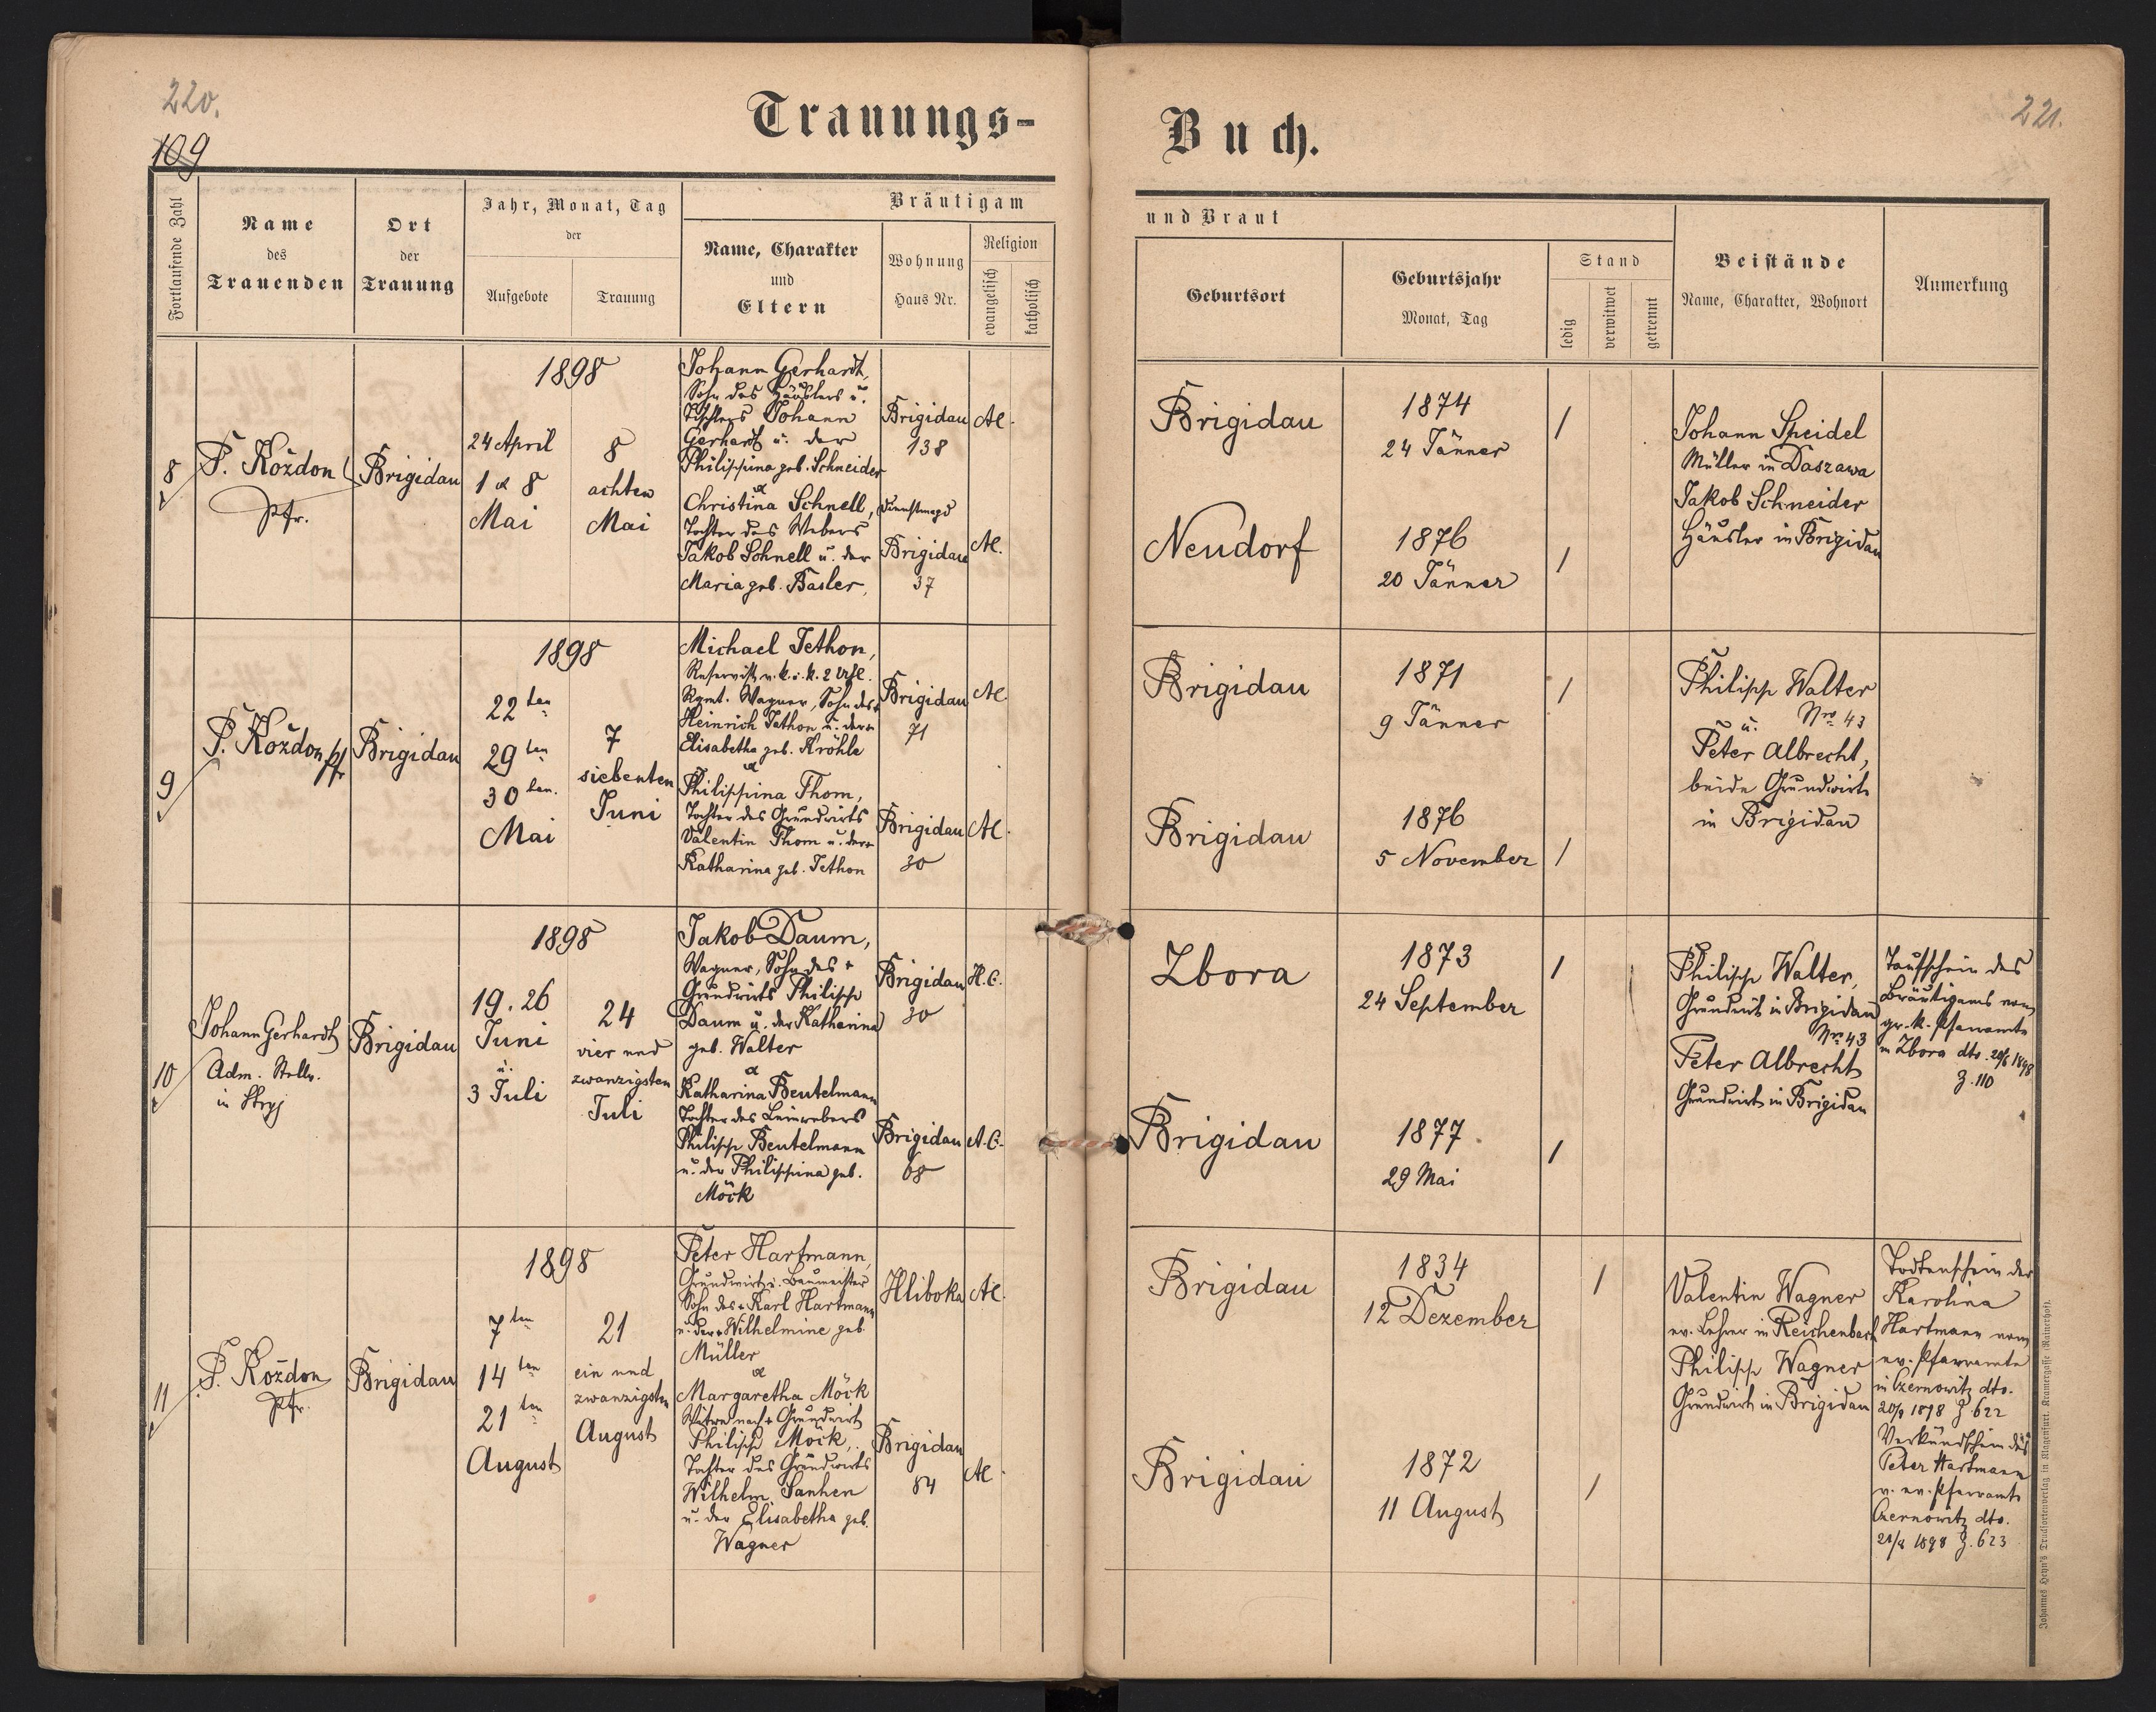 220.
109
Trauungs-
Fortlaufende Zahl
Name
des
Trauenden
Ort
der
Trauung
Jahr, Monat, Tag
der
Aufgebote
Trauung
Bräutigam
Name, Charakter
und
Eltern
Wohnung
Haus Nr.
Religion
evangelisch
katholisch
8
P. Koždon
Pfr.
Brigidau
1898
24 April
1 & 8
Mai
8
achten
Mai
Johann Gerhardt,
Sohn des Häuslers u.
Tischlers Johann
Gerhardt u. der
Philippina geb. Schneider
&
Christina Schnell, Dienstmagd
Tochter des Webers
Jakob Schnell u. der
Maria geb. Basler,
Brigidau
138
AC.
Brigidau
37
AC.
9
P. Koždon, Pfr
Brigidau
1898
22 ten
29 ten
30 ten.
Mai
7
siebenten
Juni
Michael Jethon,
Reservist v. k. u. k. 2
Rgmt. Wagner, Sohn des +
Heinrich Jethon u. der +
Elisabetha geb. Kröhle
&
Philippina Thom,
Tochter des Grundwirts
Valentin Thom u. der +
Katharina geb. Jethon
Brigidau
71
AC
Brigidau
30
AC.
10
Johann Gerhardt
Adm. Stellv.
in Stryj
Brigidau
1898
19. 26
Juni
u.
3 Juli
24
vier und
zwanzigsten
Juli
Jakob Daum,
Wagner, Sohn des +
Grundwirts Philipp
Daum u. der Katharina
geb. Walter
&
Katharina Beutelmann
Tochter des Leinwebers
Philipp Beutelmann
u. der Philippina geb.
Möck
Brigidau
30
H.C.
Brigidau
68
A.C.
11
P. Koždon
Pfr.
Brigidau
1898
7 ten
14 ten
21 ten
August
21
ein und
zwanzigsten
August
Peter Hartmann,
Grundwirt u. Baumeister
Sohn des + Karl Hartmann
u. der + Wilhelmine geb.
Müller
&
Margaretha Möck
Witwe nach + Grundwirt
Philipp Möck,
Tochter des Grundwirts
Wilhelm Manhen
u. der Elisabetha geb.
Wagner
Hliboka
AC.
Brigidau
84
AC.
221.
Buch.
und Braut
Geburtsort
Geburtsjahr
Monat, Tag
Stand
ledig
verwitwet
getrennt
Beistände
Name, Charakter, Wohnort
Anmerkung
Brigidau
1874
24 Jänner
/
Neudorf
1876
20 Jänner
/
Johann Scheidel
Müller in Daszawa
Jakob Schneider
Häusler in Brigidau
Brigidau
1871
9 Jänner
/
Brigidau
1876
5 November
/
Philipp Walter
Nro 43
u.
Peter Albrecht,
beide Grundwirte
in Brigidau
Zbora
1873
24 September
/
Brigidau
1877
29 Mai
/
Philipp Walter,
Grundwirt in Brigidau
Nro 43
Peter Albrecht
Grundwirt in Brigidau
Taufschein des
Bräutigams vom
gr. k. Pfarramte
in Zbora dto. 20/6 1898
Z. 110
Brigidau
1834
12 Dezember
/
Brigidau
1872
11 August
/
Valentin Wagner
ev. Lehrer in Reichenbach
Philipp Wagner
Grundwirt in Brigidau
Todtenschein der
Karolina
Hartmann vom
ev. Pfarramte
in Czernowitz dto.
20/8 1898 Z. 622
Verkündschein des
Peter Hartmann
v. ev. Pfarramte
Czernowitz dto.
21/8 1898 Z. 623
Johannes Heyn's Drucksortenverlag in Klagenfurt, Kramergasse (Rainerhof).